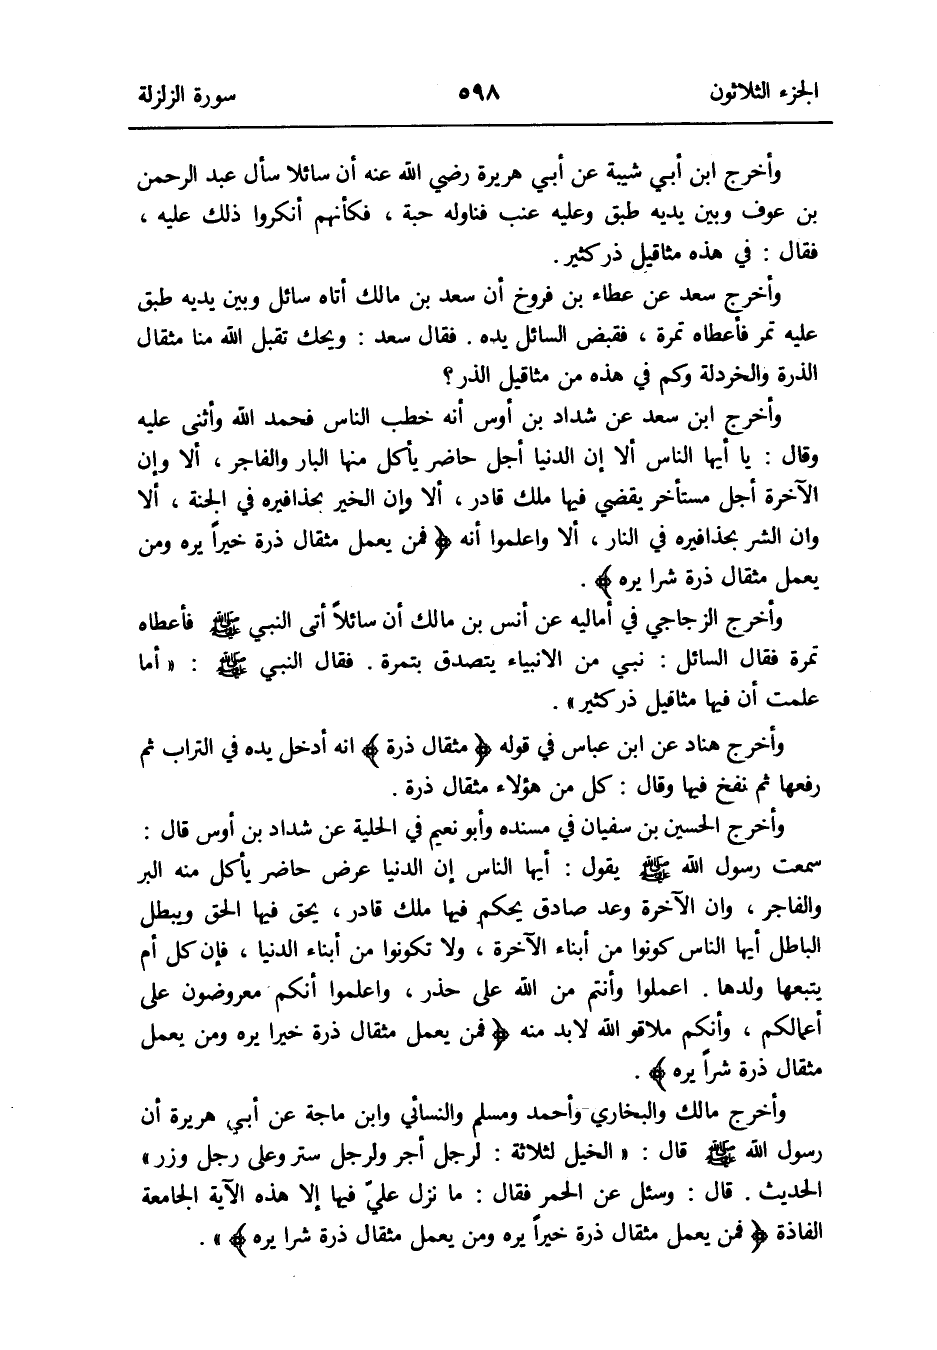 الجزء الثلاثون ٥٩٨ سورة الزلزلة
وأخرج ابن أبي شيبة عن أبي هريرة رضي الله عنه أن سائلا سأل عبد الرحمن
بن عوف وبين يديه طبق وعليه عنب فناوله حبة ، فكأنهم أنكروا ذلك عليه ،
فقال : في هذه مثاقيل ذر كثير .
وأخرج سعد عن عطاء بن فروخ أن سعد بن مالك أتاه سائل وبين يديه طبق
عليه تمر فأعطاه تمرة ، فقبض السائل يده . فقال سعد : ويحك تقبل الله منا مثقال
الذرة والخردلة وكم في هذه من مثاقيل الذر ؟
وأخرج ابن سعد عن شداد بن أوس أنه خطب الناس فحمد الله وأثنى عليه
وقال : يا أيها الناس ألا إن الدنيا أجل حاضر يأكل منها البار والفاجر ، ألا وإن
الآخرة أجل مستأخر يقضي فيها ملك قادر ، ألا وإن الخير بحذافيره في الجنة ، ألا
وان الشر بحذافيره في النار ، ألا واعلموا أنه ﴿ فمن يعمل مثقال ذرة خيراً يره ومن
يعمل مثقال ذرة شرا يره ﴾ .
وأخرج الزجاجي في أماليه عن أنس بن مالك أن سائلاً أتى النبي ﷺ فأعطاه
تمرة فقال السائل : نبي من الانبياء يتصدق بتمرة . فقال النبي ﷺ : « أما
علمت أن فيها مثاقيل ذر كثير » .
وأخرج هناد عن ابن عباس في قوله ﴿ مثقال ذرة ﴾ انه أدخل يده في التراب ثم
رفعها ثم نفخ فيها وقال : كل من هؤلاء مثقال ذرة .
وأخرج الحسين بن سفيان في مسنده وأبو نعيم في الحلية عن شداد بن أوس قال :
سمعت رسول الله ﷺ يقول : أيها الناس إن الدنيا عرض حاضر يأكل منه البر
والفاجر ، وان الآخرة وعد صادق يحكم فيها ملك قادر ، يحق فيها الحق ويبطل
الباطل أيها الناس كونوا من أبناء الآخرة ، ولا تكونوا من أبناء الدنيا ، فإن كل أم
يتبعها ولدها . اعملوا وأنتم من الله على حذر ، واعلموا أنكم معروضون على
أعمالكم ، وأنكم ملاقو الله لابد منه ﴿ فمن يعمل مثقال ذرة خيرا يره ومن يعمل
مثقال ذرة شراً يره ﴾ .
وأخرج مالك والبخاري وأحمد ومسلم والنسائي وابن ماجة عن أبي هريرة أن
رسول الله ﷺ قال : « الخيل لثلاثة : لرجل أجر ولرجل ستر وعلى رجل وزر »
الحديث . قال : وسئل عن الحمر فقال : ما نزل عليّ فيها إلا هذه الآية الجامعة
الفاذة ﴿ فمن يعمل مثقال ذرة خيراً يره ومن يعمل مثقال ذرة شرا يره ﴾ » .